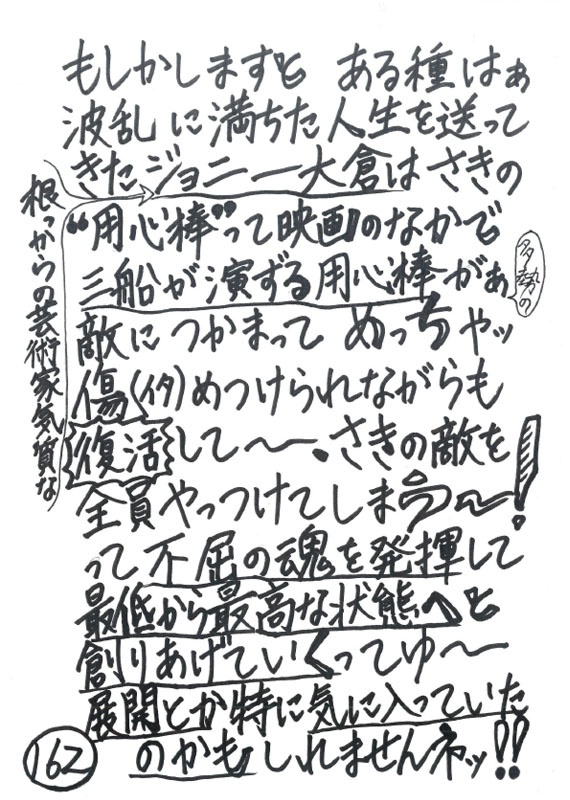 もしかしますと ある種はぁ
波乱に満ちた人生を送って
きたジョニー大倉はさきの
根っからの芸術家気質な
“用心棒”って映画のなかで
三船が演ずる用心棒がぁ
多勢の
敵につかまって めっちャッ
傷(イタ)めつけられながらも
復活して〜、さきの敵を
全員やっつけてしまう〜!
って不屈の魂を発揮して
最低から最高な状態へと
創りあげていくってゆ〜
展開とか特に気に入っていた
のかもしれませんネッ!!
162